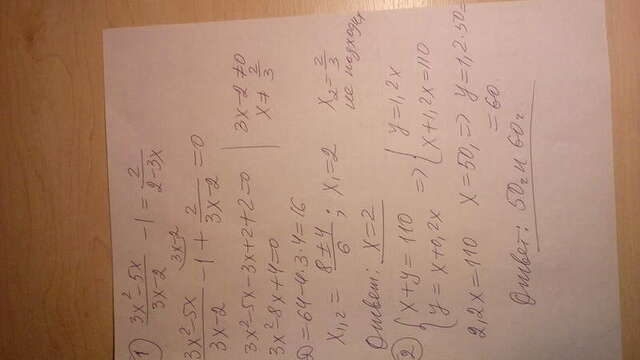 1) (3x² - 5x)/(3x - 2) - 1 = 2/(2 - 3x)
(3x² - 5x)/(3x - 2) - 1 (3x-2) + 2/(3x - 2) = 0
3x² - 5x - 3x + 2 + 2 = 0 | 3x - 2 ≠ 0
3x² - 8x + 4 = 0 | x ≠ 2/3
D = 64 - 4·3·4 = 16
x₁,₂ = (8 ± 4)/6 ; x₁ = 2 x₂ = 2/3
не подходит
Ответ: x = 2
2) { x + y = 110 => { y = 1,2x
{ y = x + 0,2x { x + 1,2x = 110
2,2x = 110 x = 50, => y = 1,2·50 =
= 60
Ответ: 50г и 60г